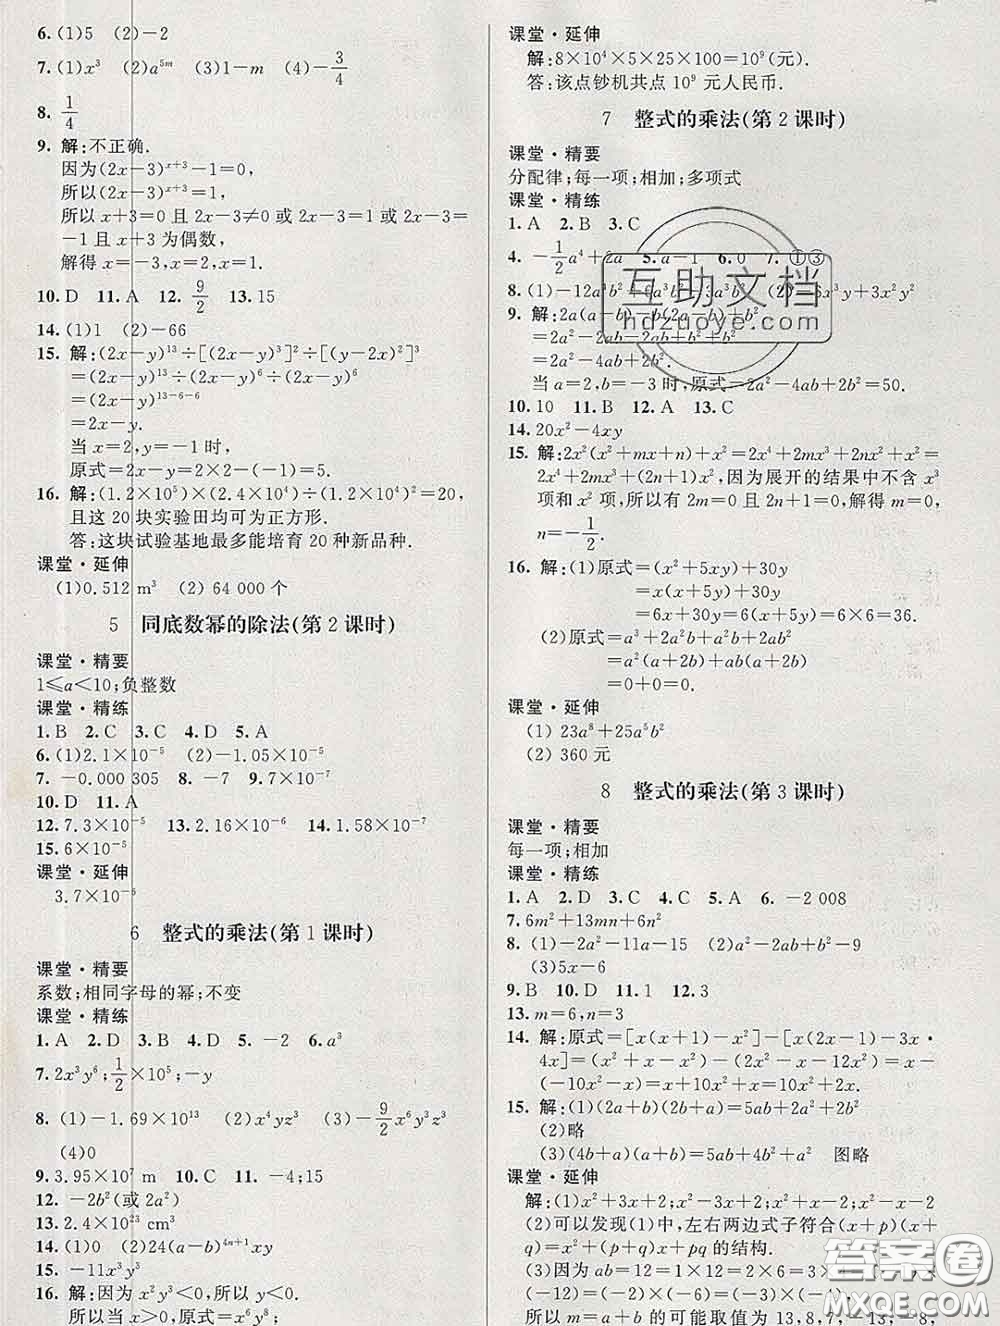 6. (1)5 (2)-2
7. (1)x³ (2)a⁵ᵐ (3)1-m (4)-3/4
8. 1/4
9. 解:不正确.
因为(2x-3)ˣ⁺³-1=0,
所以(2x-3)ˣ⁺³=1,
所以 x+3=0 且 2x-3≠0 或 2x-3=1 或 2x-3=
-1 且 x+3 为偶数,
解得 x=-3,x=2,x=1.
10. D 11. A 12. 9/2 13. 15
14. (1)1 (2)-66
15. 解:(2x-y)¹³÷[(2x-y)³]²÷[(y-2x)²]³
=(2x-y)¹³÷(2x-y)⁶÷(2x-y)⁶
=(2x-y)¹³⁻⁶⁻⁶
=2x-y.
当 x=2,y=-1 时,
原式=2×2-(-1)=5.
16. 解:(1.2×10⁵)×(2.4×10⁴)÷(1.2×10⁴)²=20,
且这 20 块实验田均可为正方形.
答:这块试验基地最多能培育 20 种新品种.
课堂·延伸
(1)0.512 m³ (2) 64 000 个
5 同底数幂的除法(第 2 课时)
课堂·精要
1≤a<10;负整数
课堂·精练
1. B 2. C 3. C 4. D 5. A
6. (1)2.1×10⁻⁵ (2)-1.05×10⁻⁵
7. -0.000 305 8. -7 9. 7×10⁻⁷
10. D 11. A
12. 7.3×10⁻⁵ 13. 2.16×10⁻⁶ 14. 1.58×10⁻⁷
15. 6×10⁻⁵
课堂·延伸
3.7×10⁻⁶
6 整式的乘法(第 1 课时)
课堂·精要
系数;相同字母的幂;不变
课堂·精练
1. A 2. D 3. B 4. D 5. -2 6. a³
7. 2x³y⁶;1/2×10⁵;-y
8. (1)-1.69×10¹³ (2)x⁴yz³ (3)-9/2x⁶y³z³
(4)0
9. 3.95×10⁷ m 10. C 11. -4;15
12. -2b²(或 2a²)
13. 2.4×10²³ cm³
14. (1)0 (2)24(a-b)⁴ⁿ⁺¹xy
15. -11x³y³
16. 解:因为 x²y³<0,所以 y<0.
所以当 x>0,原式=0;
课堂·延伸
解:8×10⁴×5×25×100=10⁹(元).
答:该点钞机共点 10⁹ 元人民币.
7 整式的乘法(第 2 课时)
课堂·精要
分配律;每一项;相加;多项式
课堂·精练
1. A 2. B 3. C
4. -1/2a⁴+2a 5. a-1 6. 0 7. ①③
8. (1)-12a³b²+6a³b³ 3x³y+3x²y²
9. 解:2a(a-b)-b(2a-b)+b²
=2a²-2ab-2ab+b²+b²
=2a²-4ab+2b².
当 a=2,b=-3 时,原式=2a²-4ab+2b²=50.
10. 10 11. B 12. A 13. C
14. 20x²-4xy
15. 解:2x²(x²+mx+n)+x²=2x⁴+2mx³+2nx²+x²=
2x⁴+2mx³+(2n+1)x²,因为展开的结果中不含 x³
项和 x² 项,所以有 2m=0 且 2n+1=0,解得 m=0,
n=-1/2.
16. 解:(1)原式=(x²+5xy)+30y
=x(x+5y)+30y
=6x+30y=6(x+5y)=6×6=36.
(2)原式=a³+2a²b+a²b+2ab²
=a²(a+2b)+ab(a+2b)
=0+0=0.
课堂·延伸
(1) 23a⁸+25a⁵b²
(2) 360 元
8 整式的乘法(第 3 课时)
课堂·精要
每一项;相加
课堂·精练
1. A 2. D 3. C 4. C 5. A 6. -2 008
7. 6m²+13mn+6n²
8. (1)-2a²-11a-15 (2)a²-2ab+b²-9
(3)5x-6
9. B 10. D 11. 1 12. 3
13. m=6,n=3
14. 解:原式=[x(x+1)-x²]-[x(2x-1)-3x·
4x]=(x²+x-x²)-(2x²-x-12x²)=x-
(-10x²-x)=x+10x²+x=10x²+2x.
15. 解:(1)(2a+b)(a+b)=2a²+3ab+b²
(2)略
(3)(4b+a)(b+a)=5ab+4b²+a² 图略
课堂·延伸
解:(1)x²+3x+2;x²-3x+2;x²+x-2;x²-x-2
(2)可以发现(1)中,左右两边式子符合(x+p)(x+
q)=x²+(p+q)x+pq 的结构.
(3)因为 ab=12=1×12=2×6=3×4=(-1)×
(-12)=(-2)×(-6)=(-3)×(-4),
所以 m=a+b 的可能取值为 13,8,7,-13,-8,
互助文档
hdzuoye.com
答案圈
MXQE.COM